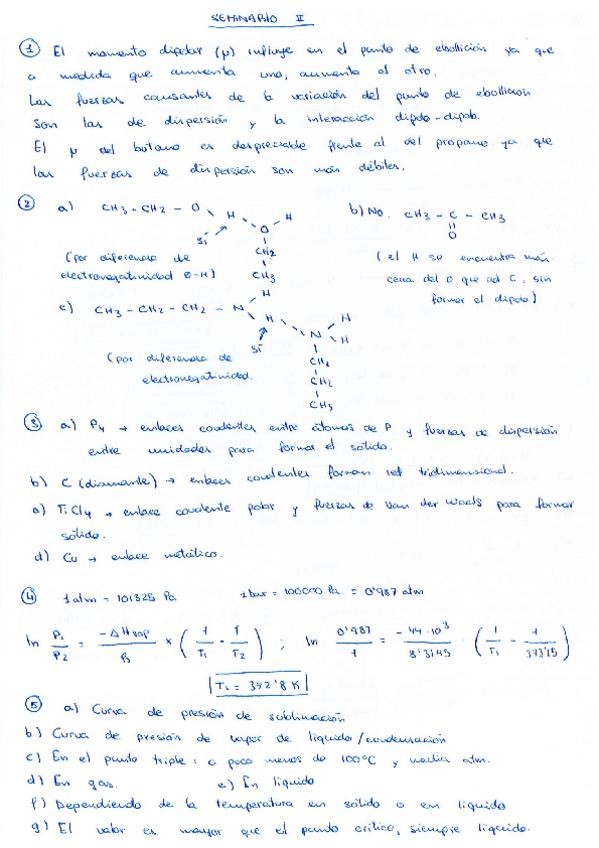 SEMINARIO II
① El momento dipolar (μ) influye en el punto de ebullición ya que
a medida que aumenta uno, aumenta el otro.
Las fuerzas causantes de la variación del punto de ebullición
son las de dispersión y la interacción dipolo-dipolo.
El μ del butano es despreciable frente al del propano ya que
las fuerzas de dispersión son más débiles.
② a) CH3 - CH2 - O H O H
Sí
CH2
CH3
(por diferencia de
electronegatividad O-H)
b) No. CH3 - C - CH3
O
(el H se encuentra más
cerca del O que del C, sin
formar el dipolo)
c) CH3 - CH2 - CH2 - N H H N H H
Sí
CH2
CH2
CH3
(por diferencia de
electronegatividad.
③ a) P4 → enlaces covalentes entre átomos de P y fuerzas de dispersión
entre unidades para formar el sólido.
b) C (diamante) → enlaces covalentes forman red tridimensional.
c) TiCl4 → enlace covalente polar y fuerzas de Van der Waals para formar
sólido.
d) Cu → enlace metálico.
④ 1 atm = 101325 Pa 1 bar = 100000 Pa = 0'987 atm
ln P1/P2 = -ΔHvap/R × (1/T1 - 1/T2) ; ln 0'987/1 = -44·10³/8'3145 · (1/T1 - 1/373'15)
T1 = 372'8 K
⑤ a) Curva de presión de sublimación
b) Curva de presión de vapor de líquido/condensación
c) En el punto triple: a poco menos de 100°C y media atm.
d) En gas. e) En líquido
f) Dependiendo de la temperatura en sólido o en líquido
g) El valor es mayor que el punto crítico, siempre líquido.